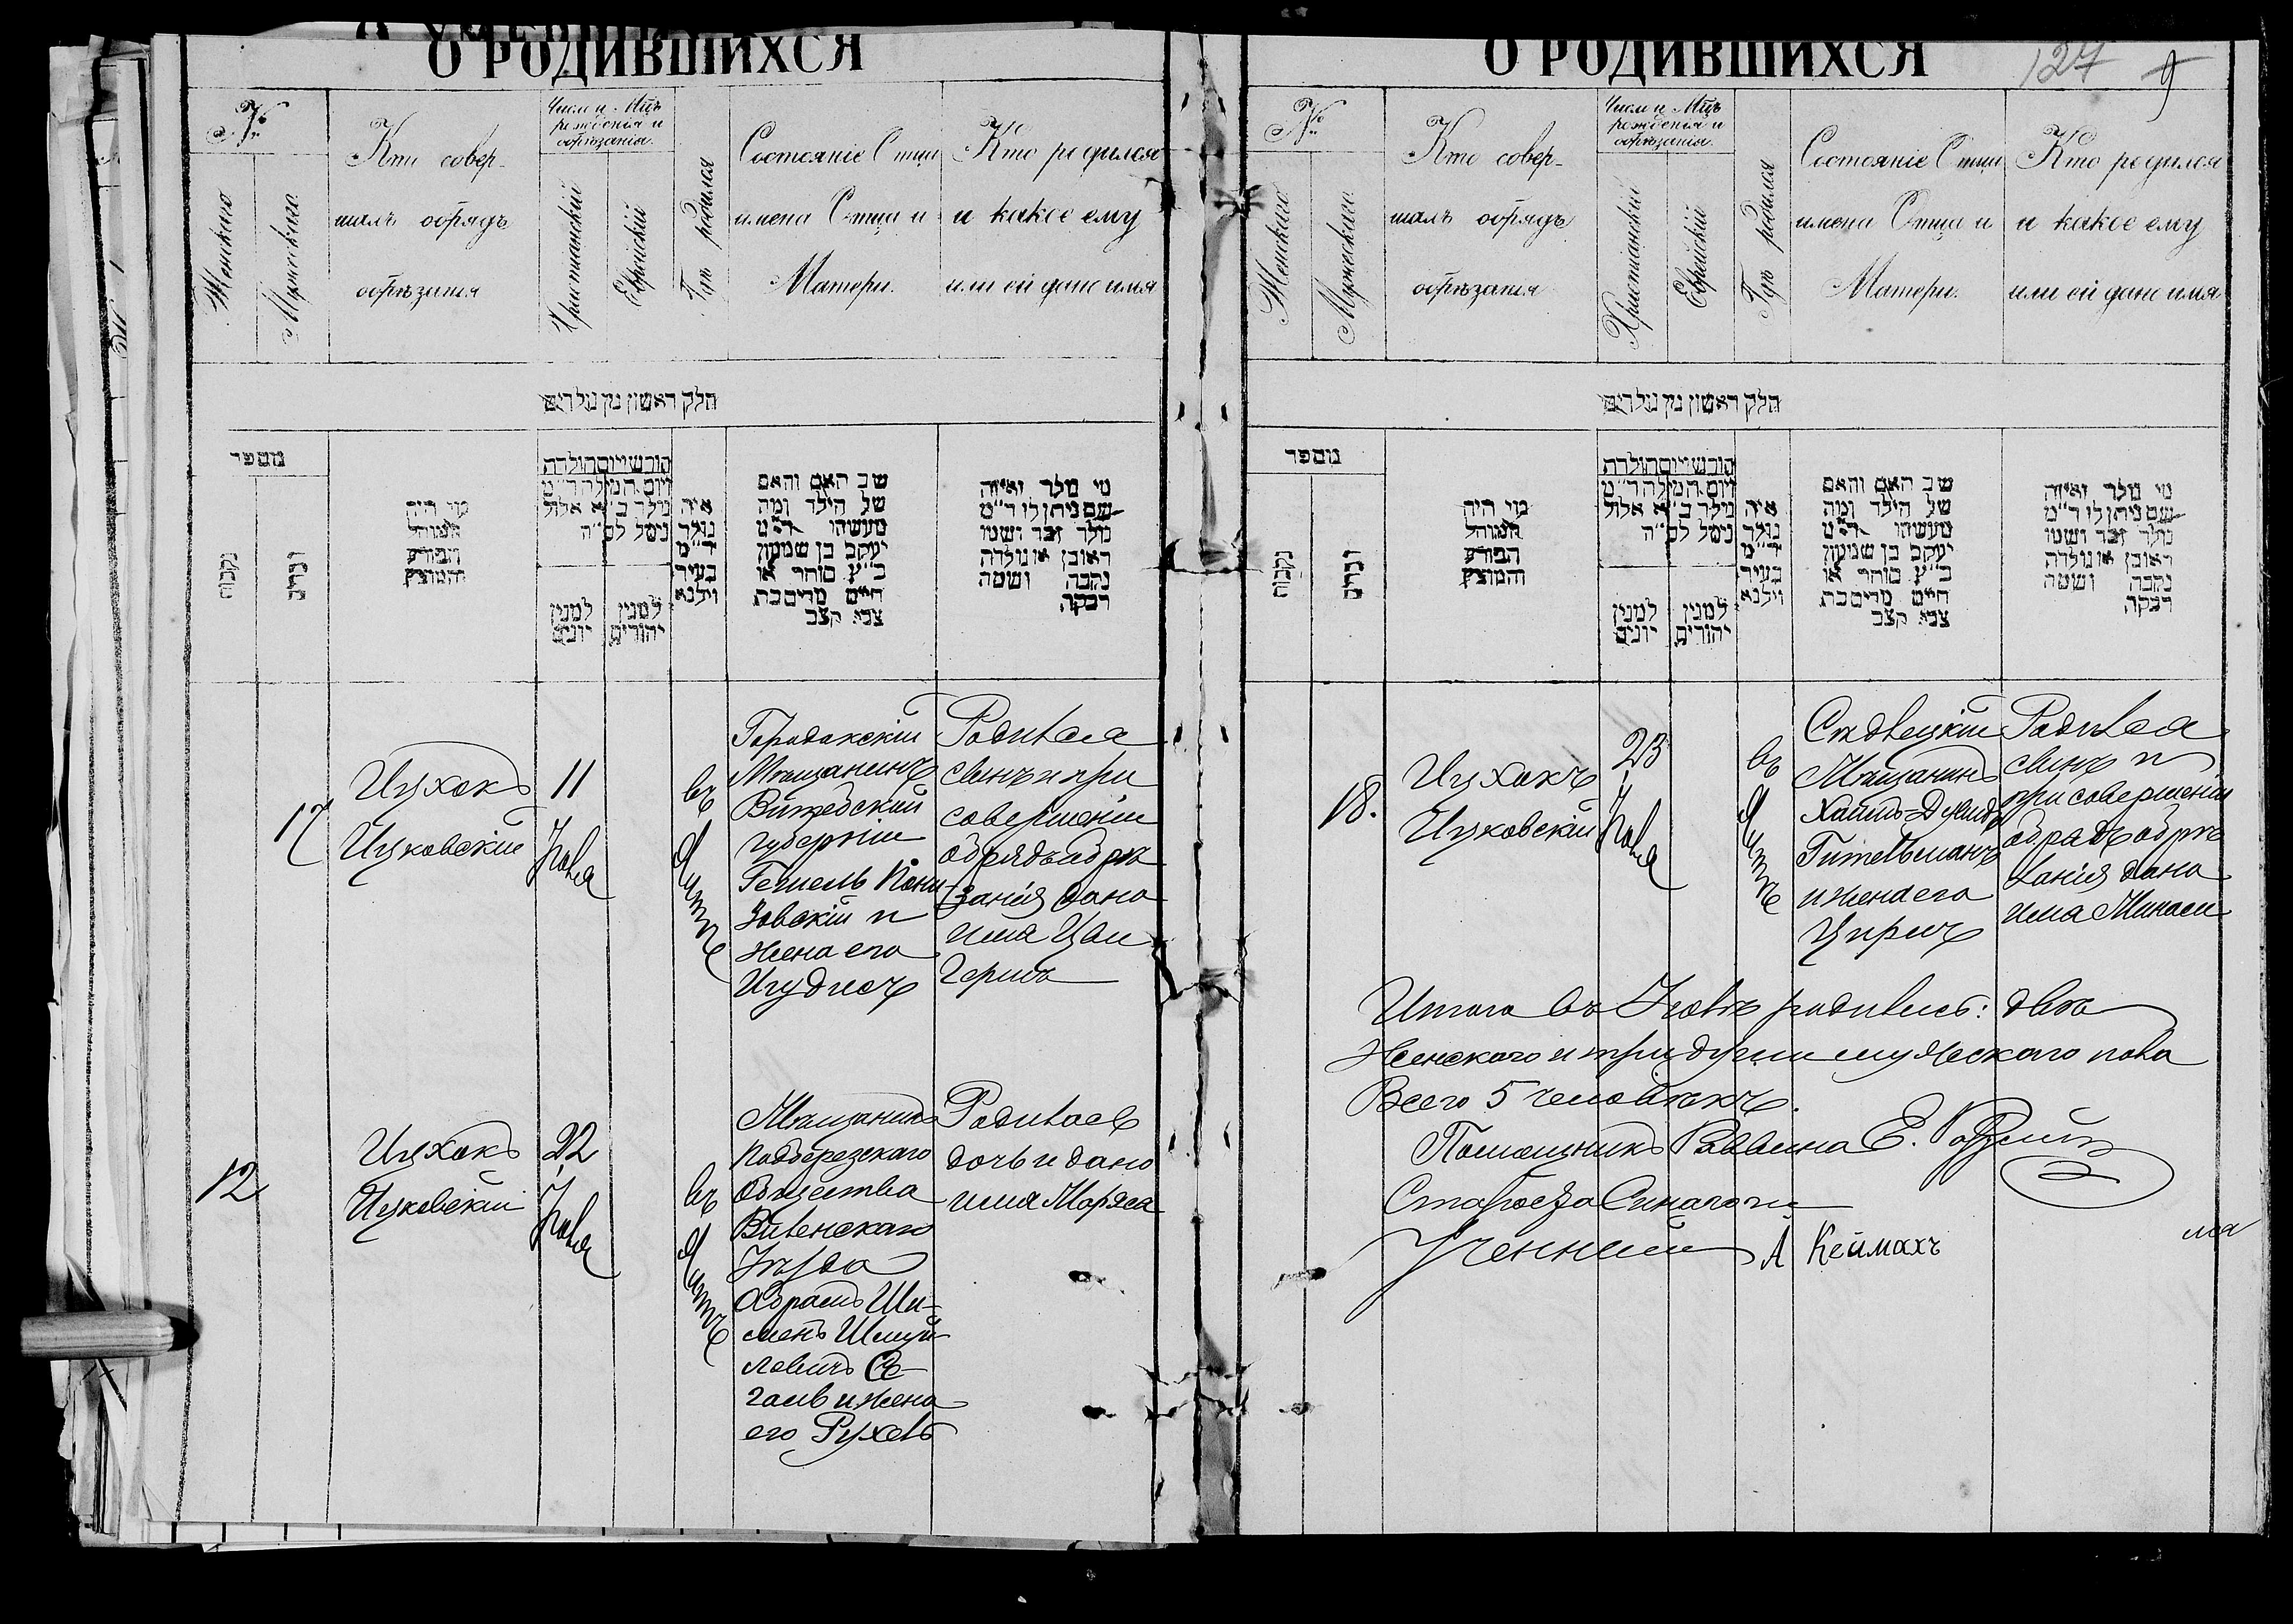 О РОДИВШИХСЯ
№
Женскаго
Мужескаго
Кто совер-
шалъ обрядъ
обрѣзанія
Число и Мѣцъ
рожденія и
обрѣзанія.
Христіанскій
Еврейскій
Гдѣ родился
Состояніе Отца
имена Отца и
Матери.
Кто родился
и какое ему
или ей дано имя
חלק ראשון מן נולדים
מספר
נקבות
זכרים
מי היה
המוהל
והפורע
והמוצץ
חודש ויום הולדת
ויום המילה ד״מ
נולד ב״א אלול
נימל לס״ה
למנין
יונים
למנין
יהודים
איה
נולד
ד״מ
בעיר
וילנא
שב האם והאם
של הילד ומה
מעשהו ד״מ
יעקב בן שמעון
כ״ץ סוחר או
חיים מרים בת
צבי קצב
מי נולד ואיזה
שם ניתן לו ד״מ
נולד זכר ושמו
ראובן או נולדה
נקבה ושמה
רבקה
17
Ицхокъ
Ицковскій
11
Іюля
въ
Городокскій
Мѣщанинъ
Витебской
губерніи
Гешель
жена его
Родился
сынъ и при
совершеніи
обрядъ обрѣ-
занія дано
имя
Гершъ
12.
Ицхокъ
Ицковскій
22
Іюля
въ
Мѣщанинъ
Подберезскаго
Общества
Виленскаго
Уѣзда
Абрамъ Ши-
менъ Шмуй-
ловичъ Се-
галь и жена
его Рухель
Родилась
дочь и дано
имя Моряса
О РОДИВШИХСЯ
127 9
№
Женскаго
Мужескаго
Кто совер-
шалъ обрядъ
обрѣзанія
Число и Мѣцъ
рожденія и
обрѣзанія.
Христіанскій
Еврейскій
Гдѣ родился
Состояніе Отца
имена Отца и
Матери.
Кто родился
и какое ему
или ей дано имя
חלק ראשון מן נולדים
מספר
נקבות
זכרים
מי היה
המוהל
והפורע
והמוצץ
חודש ויום הולדת
ויום המילה ד״מ
נולד ב״א אלול
נימל לס״ה
למנין
יונים
למנין
יהודים
איה
נולד
ד״מ
בעיר
וילנא
שב האם והאם
של הילד ומה
מעשהו ד״מ
יעקב בן שמעון
כ״ץ סוחר או
חיים מרים בת
צבי קצב
מי נולד ואיזה
שם ניתן לו ד״מ
נולד זכר ושמו
ראובן או נולדה
נקבה ושמה
רבקה
18.
Ицхокъ
Ицковскій
23
Іюля
въ
Мѣщанинъ
Хаимъ-Давидъ
Гительманъ
и жена его
Родился
сынъ и
при совершеніи
обрядъ обрѣ
занія дано
имя
Итого въ Іюлѣ родились: двѣ
Женскаго и три души мужескаго пола
Всего 5 человѣкъ.
Помощникъ Раввина Е.
Староста Синагоги
Ученный А Кеймахъ